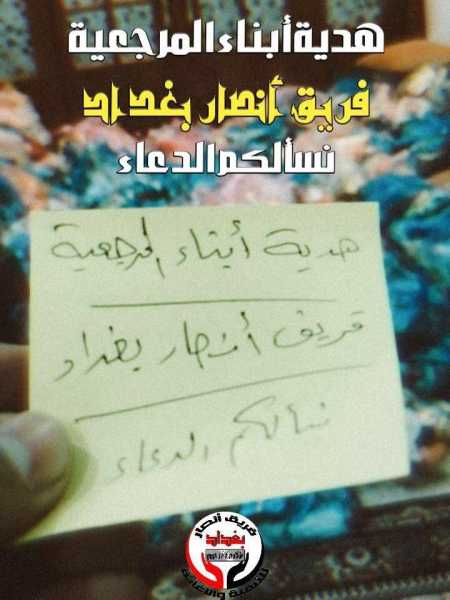 هدية أبناء المرجعية
فريق أنصار بغداد
نسألكم الدعاء
هدية أبناء المرجعية
فريق أنصار بغداد
نسألكم الدعاء
فريق أنصار
بغداد
للتنمية والإغاثة